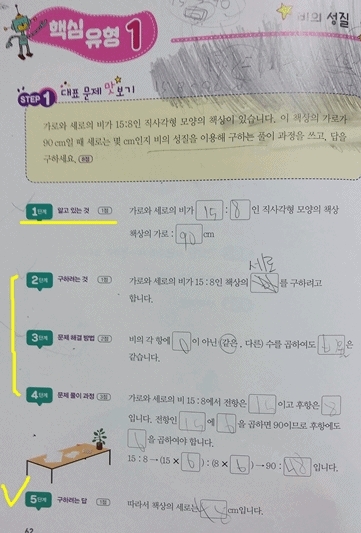 핵심 유형 1
비의 성질
STEP 1 대표 문제 맛보기
가로와 세로의 비가 15:8인 직사각형 모양의 책상이 있습니다. 이 책상의 가로가
90 cm일 때 세로는 몇 cm인지 비의 성질을 이용해 구하는 풀이 과정을 쓰고, 답을
구하세요. 8점
1단계 알고 있는 것 1점 가로와 세로의 비가 15 : 8 인 직사각형 모양의 책상
책상의 가로 : 90 cm
세로
2단계 구하려는 것 1점 가로와 세로의 비가 15 : 8인 책상의 를 구하려고
합니다.
3단계 문제 해결 방법 2점 비의 각 항에 0 이 아닌 (같은, 다른) 수를 곱하여도 비율 은
같습니다.
4단계 문제 풀이 과정 3점 가로와 세로의 비 15 : 8에서 전항은 15 이고 후항은 8
입니다. 전항인 15 에 6 을 곱하면 90이므로 후항에도
6 을 곱하여야 합니다.
15 : 8 → (15 × 6 ) : (8 × 6 ) → 90 : 48 입니다.
5단계 구하려는 답 1점 따라서 책상의 세로는 cm입니다.
62